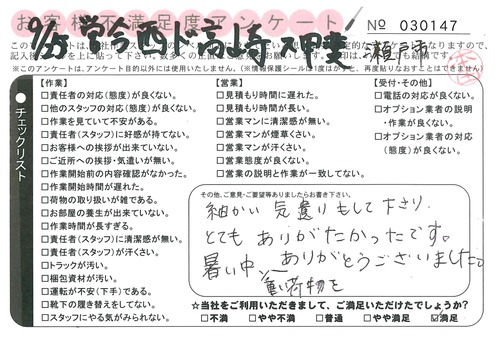 お客様不満足度アンケート
№ 030147
瀬戸市
チェックリスト
【作業】
□責任者の対応(態度)が良くない。
□他のスタッフの対応(態度)が良くない。
□作業を見ていて不安がある。
□責任者(スタッフ)に好感が持てない。
□お客様への挨拶が出来ていない。
□ご近所への挨拶・気遣いが無い。
□作業開始前の内容確認がなかった。
□作業開始時間が遅れた。
□荷物の取り扱いが雑である。
□お部屋の養生が出来ていない。
□作業時間が長すぎる。
□責任者(スタッフ)に清潔感が無い。
□責任者(スタッフ)が汗くさい。
□トラックが汚い。
□梱包資材が汚い。
□運転が不安(下手)である。
□靴下の履き替えをしてない。
□スタッフにやる気がみられない。
【営業】
□見積もり時間に遅れた。
□見積もり時間が長い。
□営業マンに清潔感が無い。
□営業マンが煙草くさい。
□営業マンが汗くさい。
□営業態度が良くない。
□営業の説明と作業が一致してない。
【受付・その他】
□電話の対応が良くない。
□オプション業者の説明・作業が良くない。
□オプション業者の対応(態度)が良くない。
その他、ご意見・ご要望等ありましたらお書き下さい。
細かい気遣りもして下さり、
とてもありがたかったです。
暑い中、重い荷物を
ありがとうございました。
☆当社をご利用いただきまして、ご満足いただけたでしょうか?
□不満 □やや不満 □普通 □やや満足 ☑満足